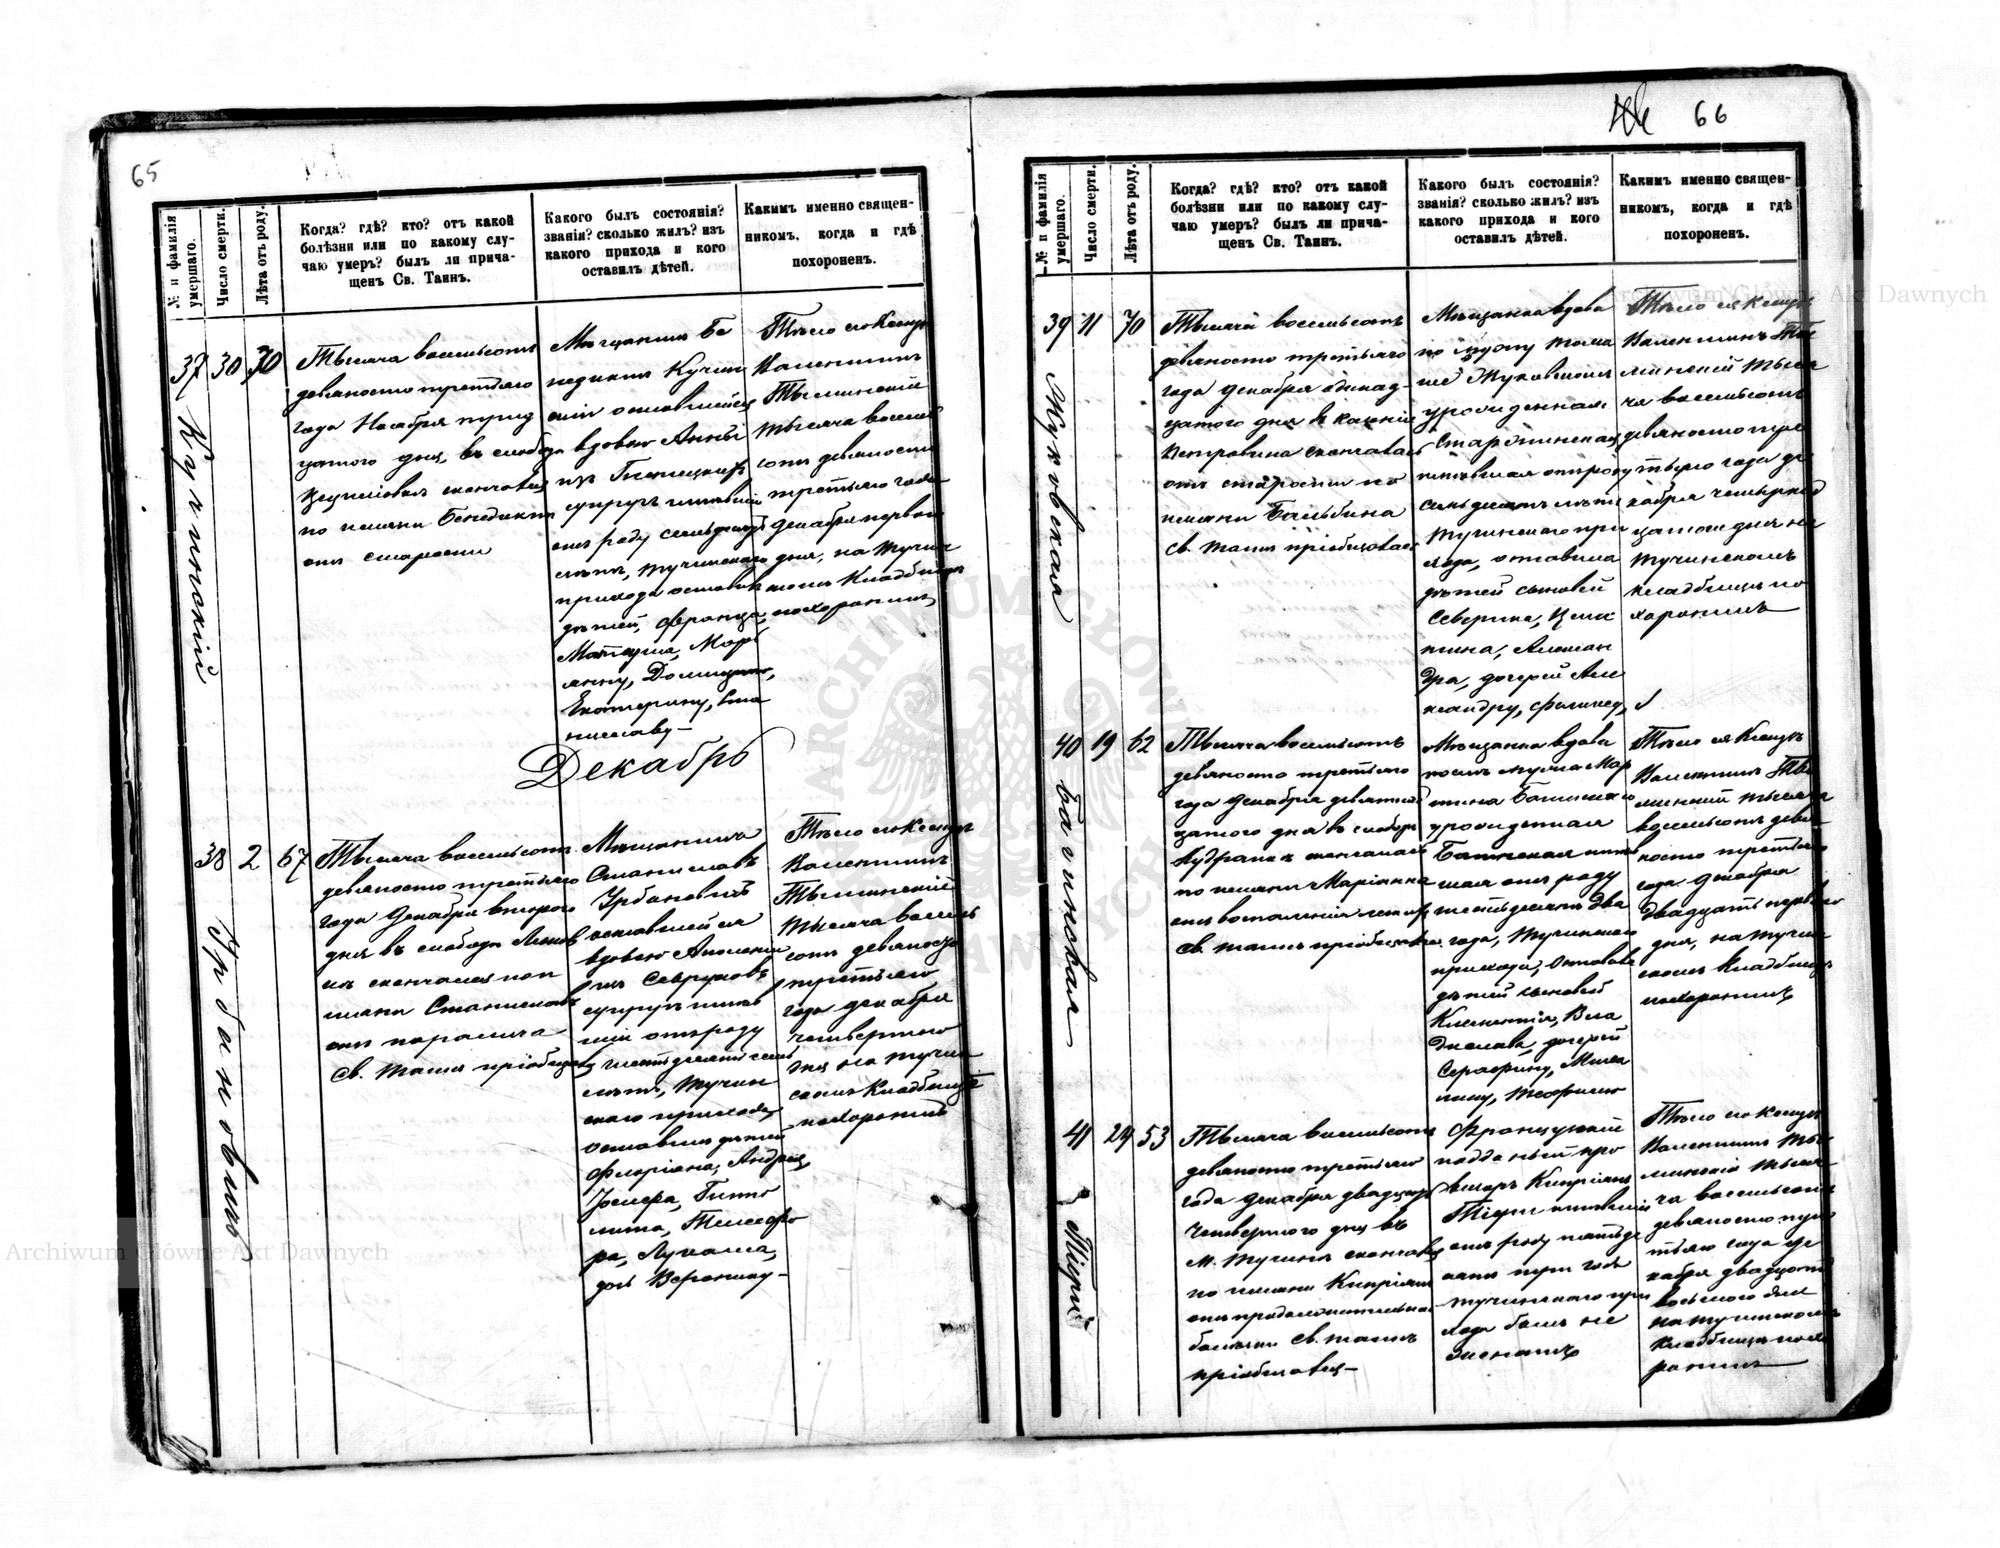 65
№ и фамилія умершаго.
Число смерти.
Лѣта отъ роду.
Когда? гдѣ? кто? отъ какой
болѣзни или по какому слу-
чаю умеръ? былъ ли прича-
щенъ Св. Таинъ.
Какого былъ состоянія?
званія? сколько жилъ? изъ
какого прихода и кого
оставилъ дѣтей.
Какимъ именно священ-
никомъ, когда и гдѣ
похороненъ.
37
30
70
Кучинскій
Тысяча восемьсотъ
девяносто третьяго
года Ноября трид
цатого дня, въ слободѣ
скончался
по имени Бенедиктъ
отъ старости
Мѣщанинъ Бе
недиктъ Кучин
скій оставшейся
вдовою Анны
изъ
супругъ имѣвшій
отъ роду семьдесятъ
лѣтъ, Тучинскаго
прихода оставилъ
дѣтей, Франца,
Матеуша, Мар
янну, Доминику,
Екатерину, Ста
ниславу
Тѣло ксендзъ
Валентинъ
Тыминскій
тысяча восемь
сотъ девяносто
третьяго года
декабря первого
дня, на Тучин
скомъ кладбищѣ
похоронилъ
Декабрь
38
2
67
Урбановичъ
Тысяча восемьсотъ
девяносто третьяго
года Декабря второго
дня въ слободѣ
скончался по и
мени Станиславъ
отъ паралича
Св. Таинъ пріобщився
Мѣщанинъ
Станиславъ
Урбановичъ
оставшейся
вдовою Аполоніи
изъ
супругъ имѣв
шій отъ роду
шестьдесятъ семь
лѣтъ, Тучин
скаго прихода
оставилъ дѣтей
Флоріана, Андрея,
Іосифа, Иппо
лита,
Лукаша,
дочь Веронику
Тѣло ксендзъ
Валентинъ
Тыминскій
тысяча восемь
сотъ девяносто
третьяго
года декабря
четвертого
дня на Тучин
скомъ кладбищѣ
похоронилъ
66
№ и фамилія умершаго.
Число смерти.
Лѣта отъ роду.
Когда? гдѣ? кто? отъ какой
болѣзни или по какому слу-
чаю умеръ? былъ ли прича-
щенъ Св. Таинъ.
Какого былъ состоянія?
званія? сколько жилъ? изъ
какого прихода и кого
оставилъ дѣтей.
Какимъ именно священ-
никомъ, когда и гдѣ
похороненъ.
39
11
70
Жуковская
Тысяча восемьсотъ
девяносто третьяго
года декабря одинад-
цатого дня въ колоніи
скончалась
отъ старости по
имени Бальбина
Св. Таинъ пріобщовась
Мѣщанка вдова
по мужу Тома
шѣ Жуковскомъ
урожденная
имѣвшая отъ роду
семьдесятъ лѣтъ
Тучинскаго при
хода, оставила
дѣтей сыновей
Северина,
Алексан
дра, дочерей Але
ксандру,
Тѣло ксендзъ
Валентинъ Ты
минскій тыся
ча восемьсотъ
девяносто тре
тьяго года де
кабря четырнад
цатого дня на
Тучинскомъ
кладбищѣ по
хоронилъ
40
19
62
Багинская
Тысяча восемьсотъ
девяносто третьяго
года декабря девятнад
цатого дня въ слободѣ
скончалась
по имени Маріанна
отъ воспаленія легкихъ
Св. Таинъ пріобщовась
Мѣщанка вдова
послѣ мужа Мар
тина Багинскаго
урожденная
имѣв
шая отъ роду
шестьдесятъ два
года, Тучинскаго
прихода, оставила
дѣтей сыновей
Климентія, Вла
дислава, дочерей
Серафину,
Теофилю
Тѣло ксендзъ
Валентинъ Ты
минскій тысяча
восемьсотъ девя
носто третьяго
года декабря
двадцать первого
дня, на Тучин
скомъ кладбищѣ
похоронилъ
41
24
53
Тіери
Тысяча восемьсотъ
девяносто третьяго
года декабря двадцать
четвертого дня въ
м. Тучинѣ скончався
по имени Кипріянъ
отъ продолжительной
болѣзни Св. Таинъ
пріобщовся
Французскій
подданый про
визоръ Кипріянъ
Тіери имѣвшій
отъ роду пятьде
сятъ три года
Тучинскаго при
хода былъ не
женатъ
Тѣло ксендзъ
Валентинъ Ты
минскій тыся
ча восемьсотъ
девяносто тре
тьяго года де
кабря двадцать
восьмого дня
на Тучинскомъ
кладбищѣ похо
ронилъ
Archiwum Główne Akt Dawnych
Archiwum Główne Akt Dawnych
ARCHIWUM GŁÓWNE AKT DAWNYCH